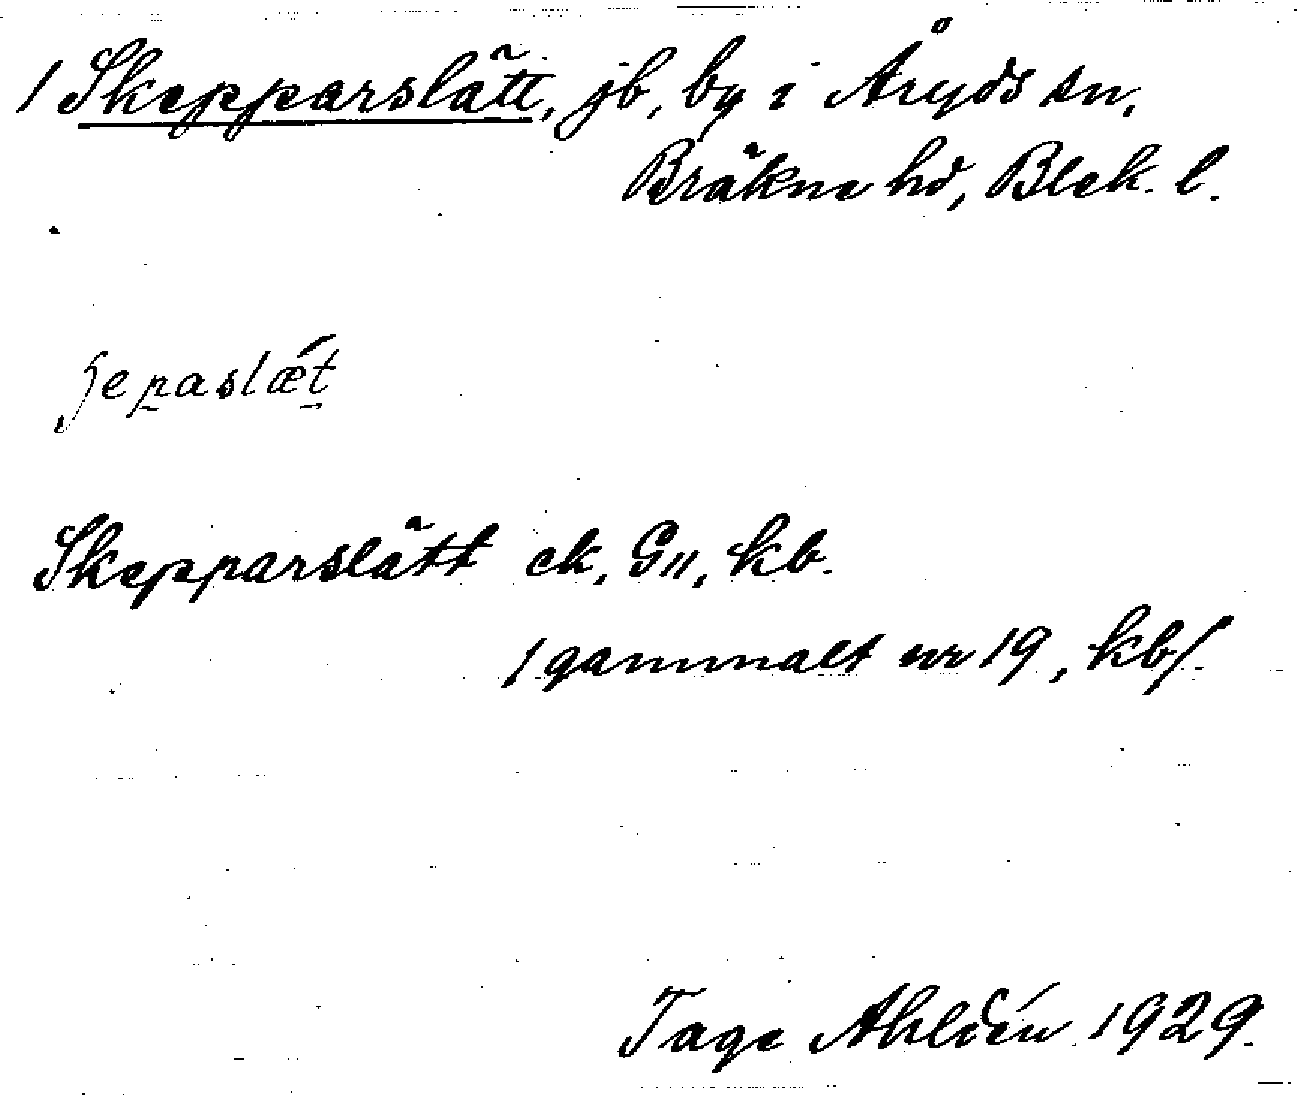 / Skepparslätt, jb, by i Åryds sn,
Bräkne hd, Blek. l.
ʃepaslǽt
Skepparslätt ek, G11, kb.
/gammalt nr 19, kb/.
Tage Ahldén 1929.